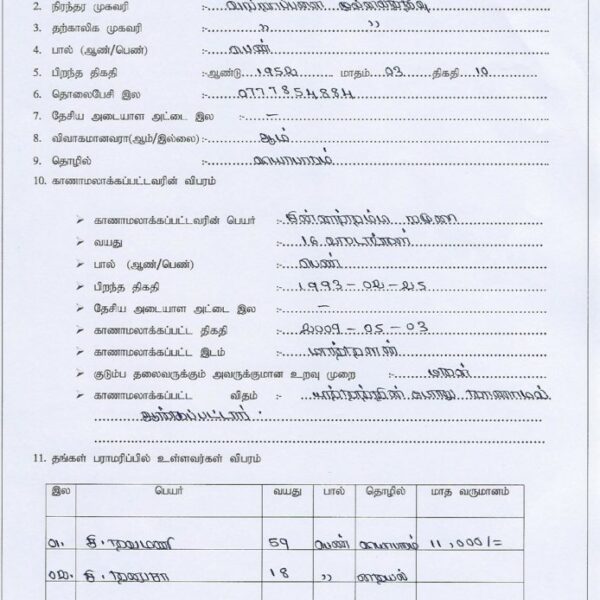 2. நிரந்தர முகவரி :-
3. தற்காலிக முகவரி :- ,, ,,
4. பால் (ஆண்/பெண்) :- பெண்
5. பிறந்த திகதி :-ஆண்டு 1950 மாதம் 03 திகதி 10
6. தொலைபேசி இல :- 0777854884
7. தேசிய அடையாள அட்டை இல :- –
8. விவாகமானவரா(ஆம்/இல்லை):- ஆம்
9. தொழில் :-
10. காணாமலாக்கப்பட்டவரின் விபரம்
➤ காணாமலாக்கப்பட்டவரின் பெயர் :-
➤ வயது :- 16
➤ பால் (ஆண்/பெண்) :- பெண்
➤ பிறந்த திகதி :- 1993-02-25
➤ தேசிய அடையாள அட்டை இல :- –
➤ காணாமலாக்கப்பட்ட திகதி :- 2009-05-03
➤ காணாமலாக்கப்பட்ட இடம் :- மாத்தளன்
➤ குடும்ப தலைவருக்கும் அவருக்குமான உறவு முறை :- மகள்
➤ காணாமலாக்கப்பட்ட விதம் :- யுத்தத்தின் போது காணாமல்
ஆக்கப்பட்டார்.
11. தங்கள் பராமரிப்பில் உள்ளவர்கள் விபரம்
இல பெயர் வயது பால் தொழில் மாத வருமானம்
01. சி. நவமணி 59 பெண் 11,000/=
02. சி. 18 ,, தையல்